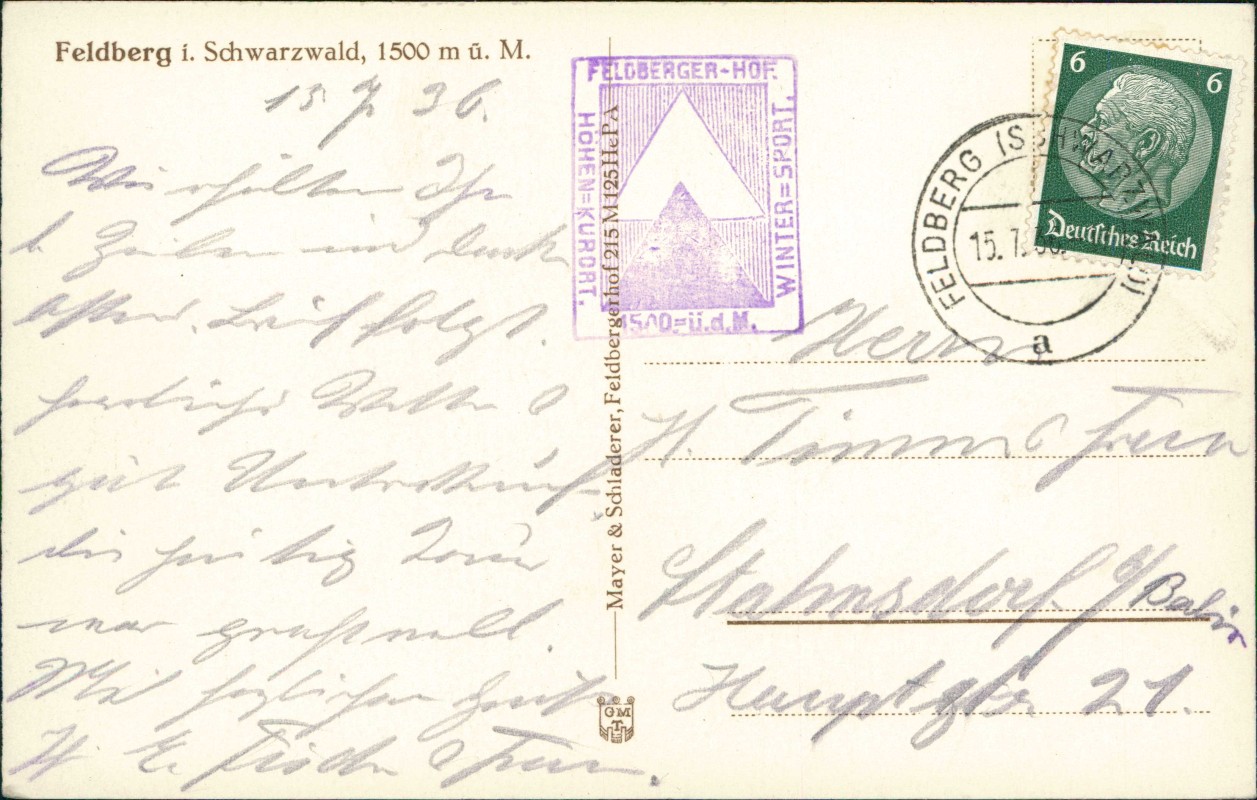 Feldberg i. Schwarzwald, 1500 m ü. M.
15 7 36.
Wir erhielten Ihr
l. Zeilen und danken
Brief folgt.
herrliches Wetter &
gut Unterkunft
die heutig Tour
war prachtvoll.
Mit herzlichen Gruß
H. E. Tischer & Frau.
FELDBERGER-HOF.
HÖHEN=KURORT.
WINTER=SPORT.
1500=ü.d.M.
Mayer & Schladerer, Feldbergerhof 215 M 125 HePA
GMT
6 6
Deutsches Reich
FELDBERG (SCHWARZWALD)
15.7.36
a
Herrn
H. Timm & Frau
Stahnsdorf b/Berlin
Hauptstr. 21.